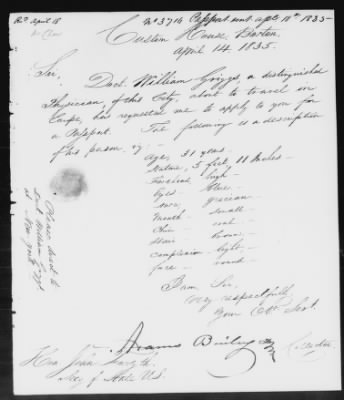 Rec April 18
No 3716 Passport sent apl 18th 1835
Custom House, Boston,
April 14. 1835.
Sir,
Doct. William Grigg, a distinguished
Physician, of this City, about to travel in
Europe, has requested me to apply to you for
a Passport. The following is a description
of his person, vz: -
Age, 31 years -
Stature, 5 feet, 11 Inches -
Forehead high -
Eyes - blue -
nose, grecian -
Mouth - small -
Chin - oval -
Hair - brown -
complexion - light, -
face - round -
I am Sir,
very respectfully
Your Obt. Sert.
Collector
Hon. John Forsyth,
Secy of State U.S.
Please direct to
Doct William Grigg
at New York